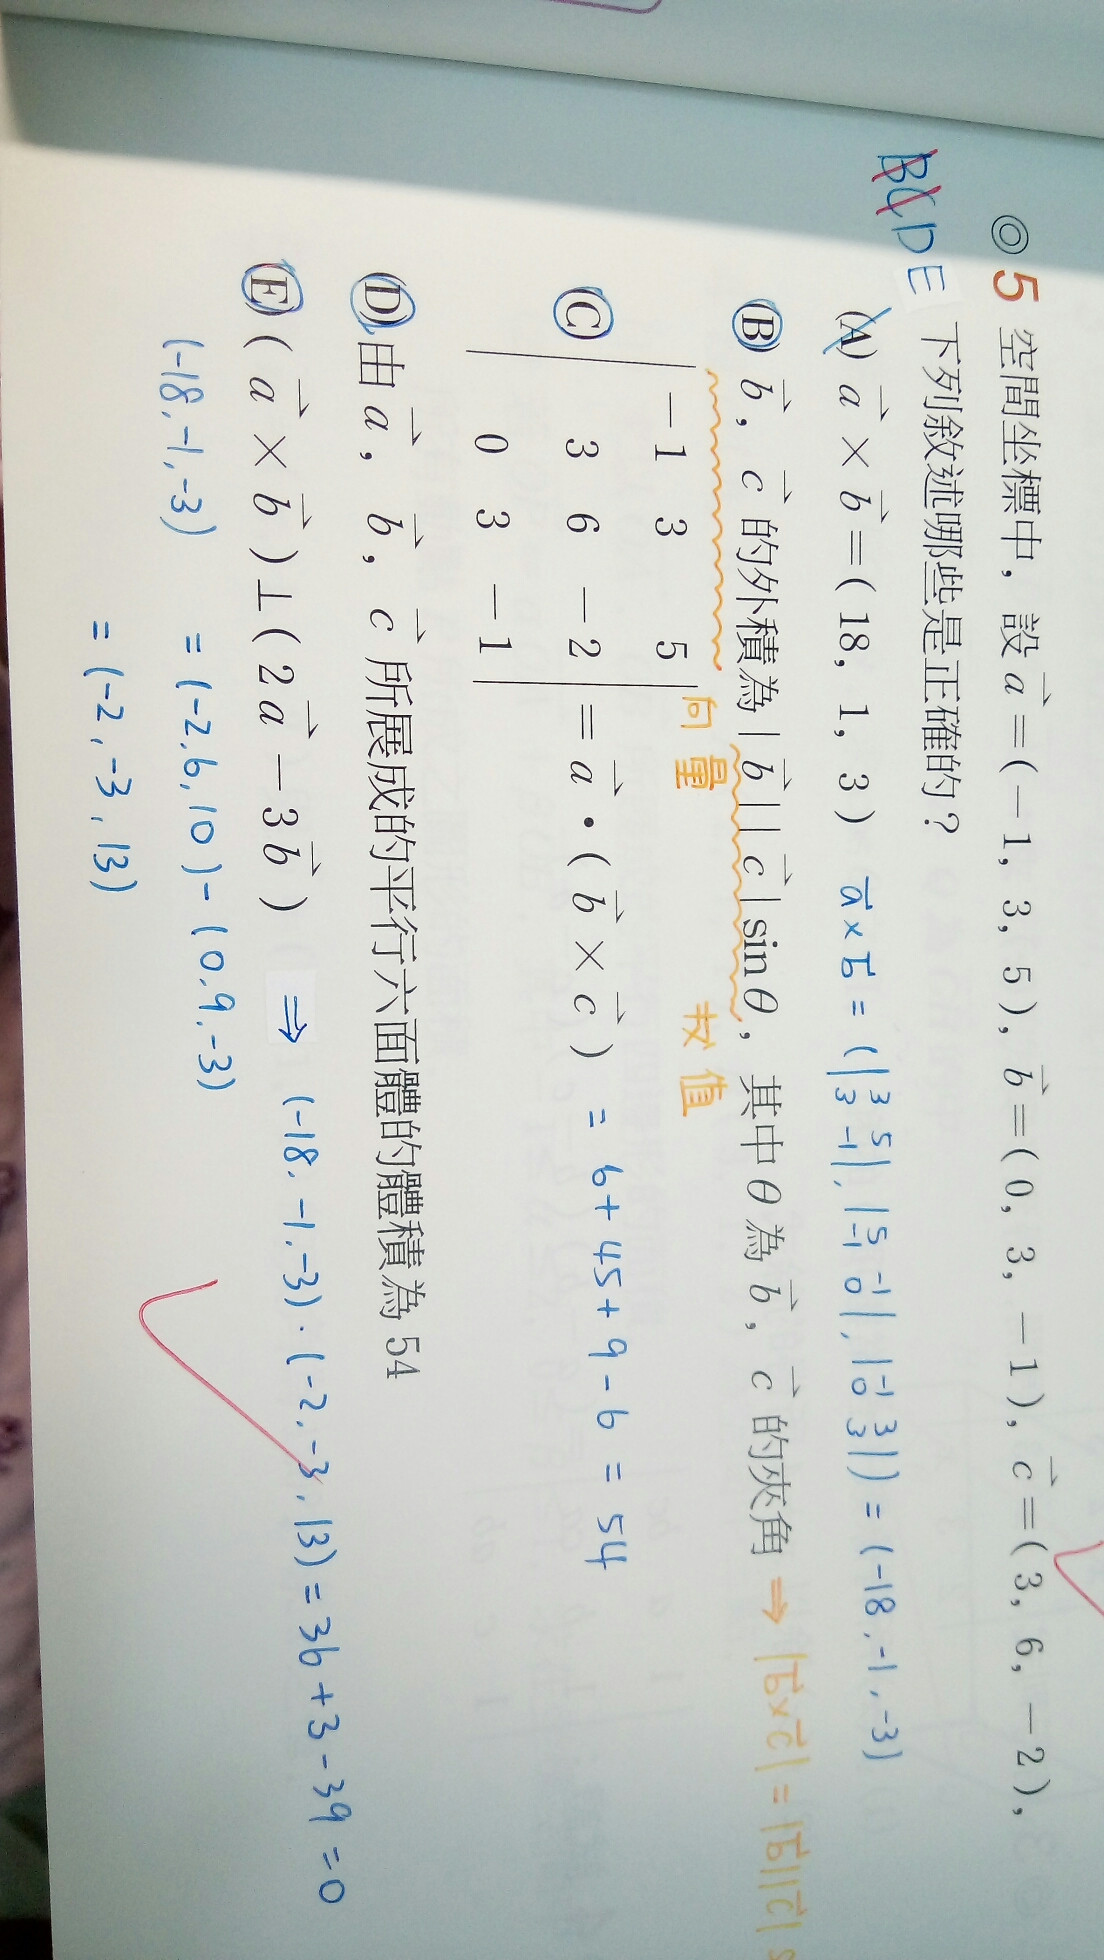 ◎5 空間坐標中，設 a⃗=(−1, 3, 5), b⃗=(0, 3, −1), c⃗=(3, 6, −2),
BCDE 下列敘述哪些是正確的？
(A) a⃗×b⃗=(18, 1, 3) a⃗×b⃗ = (|3 5 / 3 -1|, |5 -1 / -1 0|, |-1 3 / 0 3|) = (-18, -1, -3)
(B) b⃗, c⃗ 的外積為 |b⃗||c⃗|sinθ，其中θ為 b⃗, c⃗ 的夾角 ⇒ |b⃗×c⃗| = |b⃗||c⃗| s
向量 数值
(C) | −1 3 5 |
| 3 6 −2 | = a⃗•(b⃗×c⃗) = 6+45+9-6 = 54
| 0 3 −1 |
(D) 由 a⃗, b⃗, c⃗ 所展成的平行六面體的體積為 54
(E) (a⃗×b⃗)⊥(2a⃗−3b⃗) ⇒ (-18, -1, -3)·(-2, -3, 13) = 36+3-39 = 0
(-18, -1, -3) = (-2, 6, 10) - (0, 9, -3)
= (-2, -3, 13)